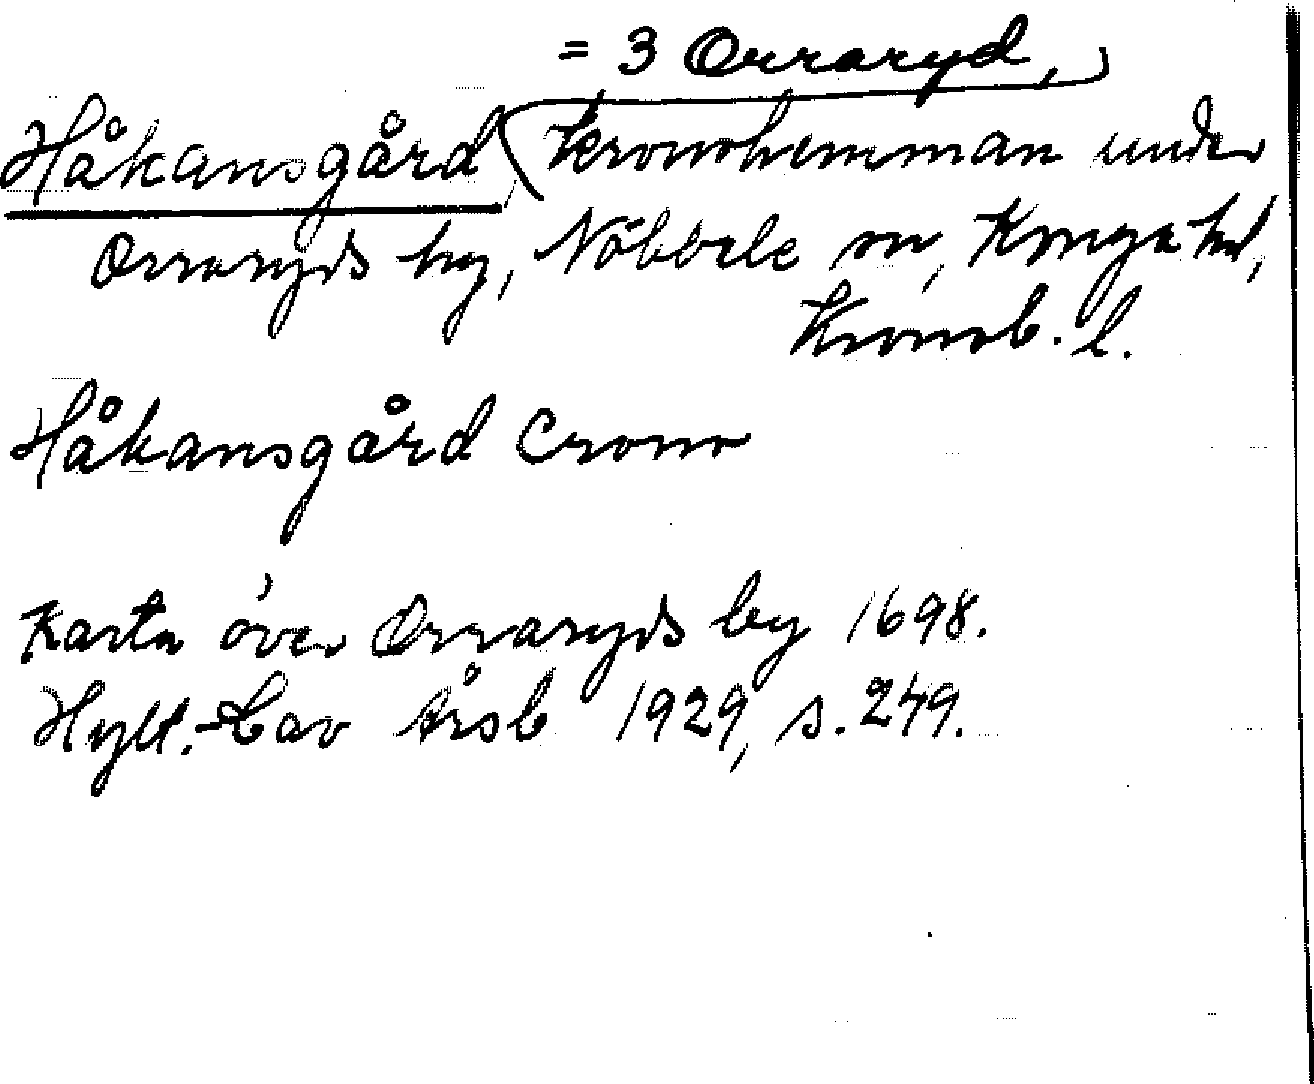 = 3 Orraryd,
Håkansgård, Kronohemman under
Orraryds by, Nöbbele sn, Konga hd,
Kronob. l.
Håkansgård Crono
Karta över Orraryds by 1698.
Hylt.-Cav Årsb 1929, s. 249.